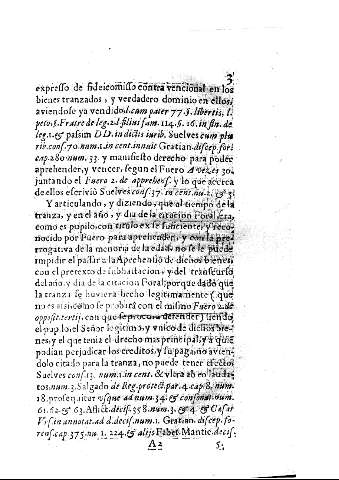 3
expresso de fideicomisso contra vencional en los
bienes tranzados, y verdadero dominio en ellos,
aviendose ya vendido l. cum pater 77. §. libertis, l.
peto §. Fratre de leg. 2. l. filius fam. 114. §. 16. in fin. de
leg. 1. & passim DD. in dictis iurib. Suelves cum plu
rib. cons. 70. num. 1. in cent. innuit Gratian. discep. fori
cap. 280 num. 33. y manifiesto derecho para poder
aprehender, y vencer, segun el Fuero A vezes 30.
juntando el Fuero 2. de apprehens. y lo que acerca
de ellos escrivió Suelves cons. 37. in cent. num. 2. & 3.
Y articulando, y diziendo, que al tiempo de la
tranza, y en el año, y dia de la citacion Foral era,
como es pupilo, con titulo exsuficiente, y reco-
nocido por Fuero para aprehender, y con la pre-
rrogativa de la menoria de la edad, no se le puede
impidir el passar a la Aprehension de dichos bienes
con el pretexto de subhastacion, y del transcurso
del año, y dia de la citacion Foral; porque dado que
la tranza se huviera hecho legitimamente (que
no es assi, como se probará con el mismo Fuero 2. de
opposit. tertij. con que se procura defender) siendo
el pupilo el Señor legitimo, y vnico de dichos bie-
nes, y el que tenia el drecho mas principal, y a quiē
podian perjudicar los creditos, y su paga no avien-
dolo citado para la tranza, no puede tener efecto
Suelves cons. 13. num. 1. in cent. & vlera ab in lauda-
tos num. 3. Salgado de Reg. protect. par. 4. cap. 8. num.
18. prosequitur vsque ad num. 34. & consonat num.
61. 62. & 63. Afflict. decis. 358. num. 3. & 4. & Cæsar
Vrs. in annotat. ad d. decis. num. 1. Gratian. discep. fo-
rens. cap. 375. nu. 1. 224. & alijs Faber. Mantic. decis.
A2 5.